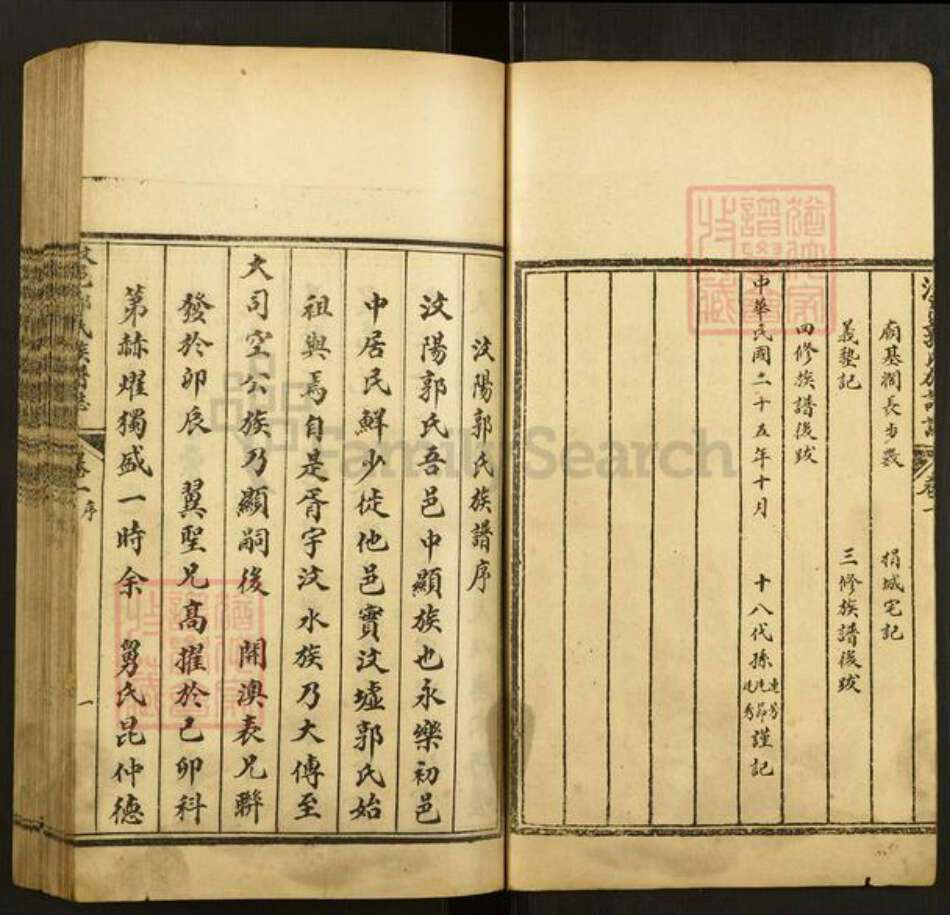 廟基濶長步數 捐城宅記
義塾記 三修族譜後跋
四修族譜後跋
中華民國二十五年十月 十八代孫 謹記
汶陽郭氏族譜序
汶陽郭氏吾邑中顯族也永樂初邑
中居民鮮少徙他邑實汶墟郭氏始
祖與焉自是胥宇汶水族乃大傳至
大司空公族乃顯嗣後 開澳表兄聯
發於卯辰 翼聖兄高擢於己卯科
第赫燿獨盛一時余 舅氏昆仲德
汶邑郭氏族譜誌 卷一 序
一
FamilySearch